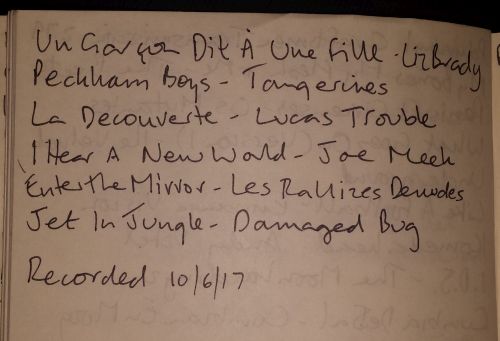 Un Garçon Dit À Une Fille - Liz Brady
Peckham Boys - Tangerines
La Decouverte - Lucas Trouble
I Hear A New World - Joe Meek
Enter The Mirror - Les Rallizes Denudes
Jet In Jungle - Damaged Bug
Recorded 10/6/17